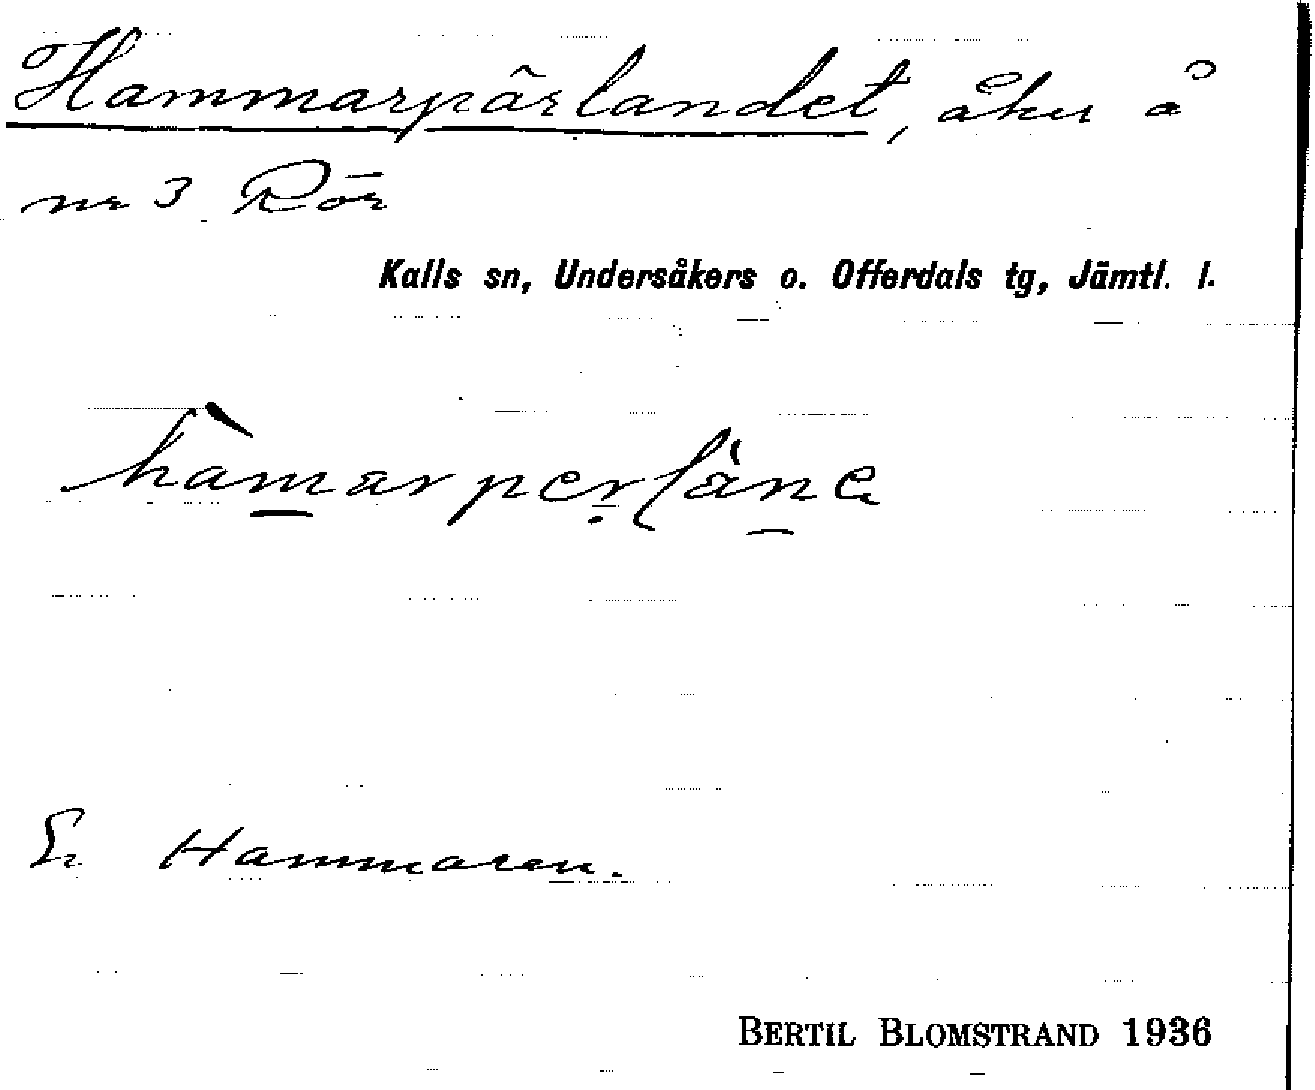 Hammarpärlandet, åker å
nr 3 Rör
Kalls sn, Undersåkers o. Offerdals tg, Jämtl. l.
hàmarperlánɛ
Se Hammaren.
BERTIL BLOMSTRAND 1936